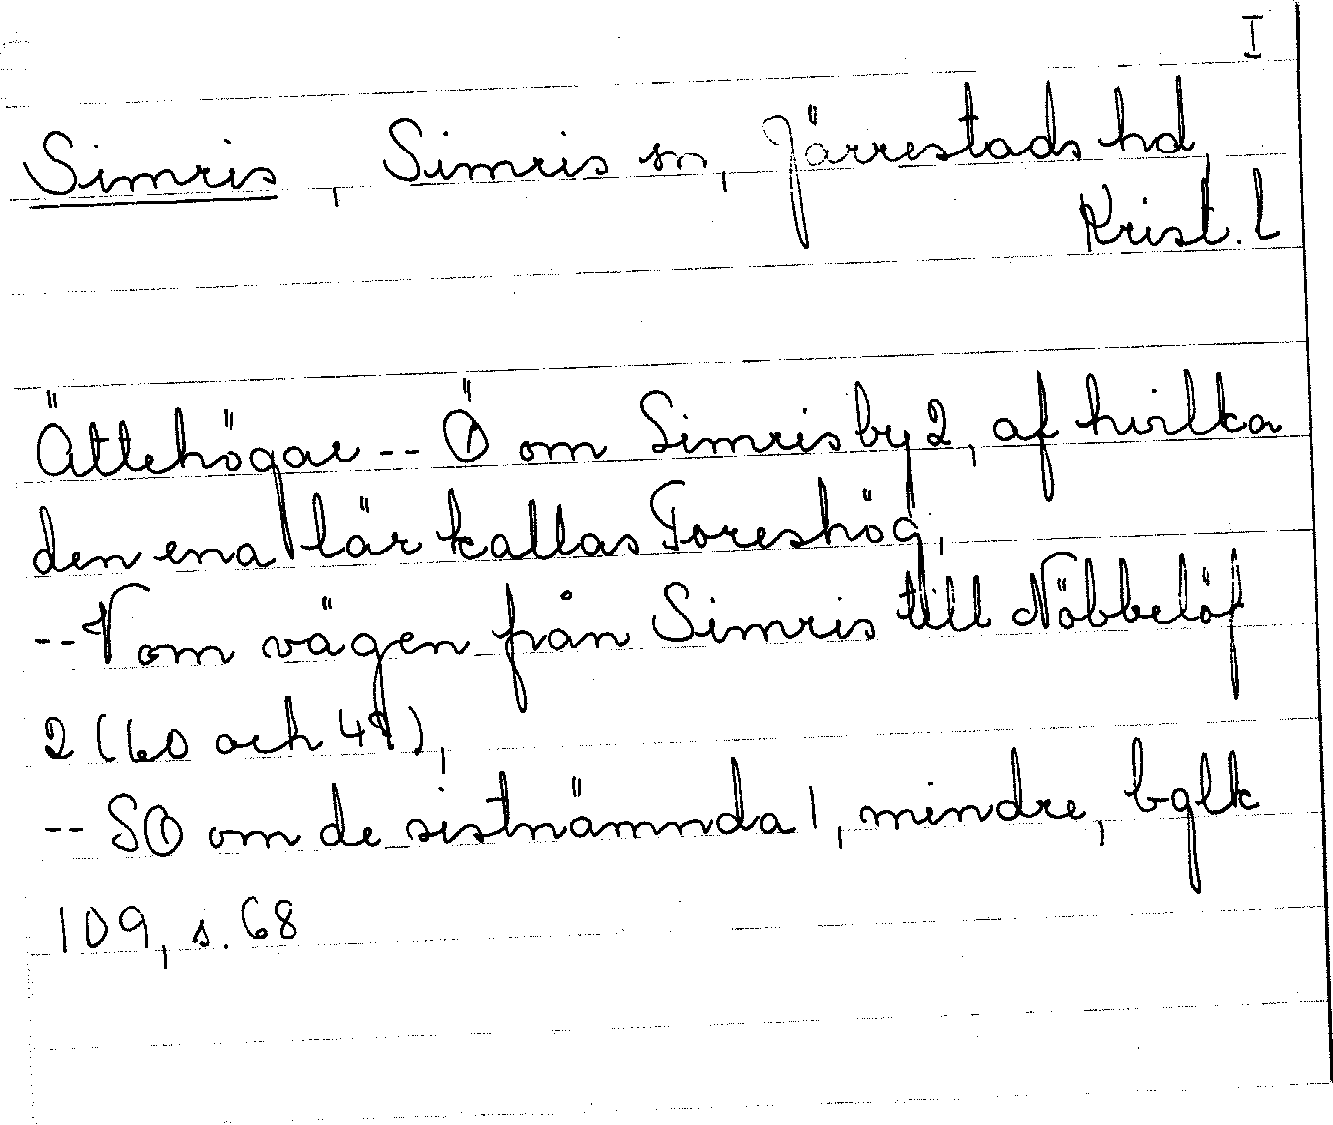 I
Simris, Simris sn, Järrestads hd,
Krist. L
Ättehögar -- Ö om Simris by 2, af hvilka
den ena lär kallas Toreshög,
-- V om vägen från Simris till Nöbbelöf
2 (60 och 49),
-- SO om de sistnämnda 1, mindre, bglk
109, s. 68